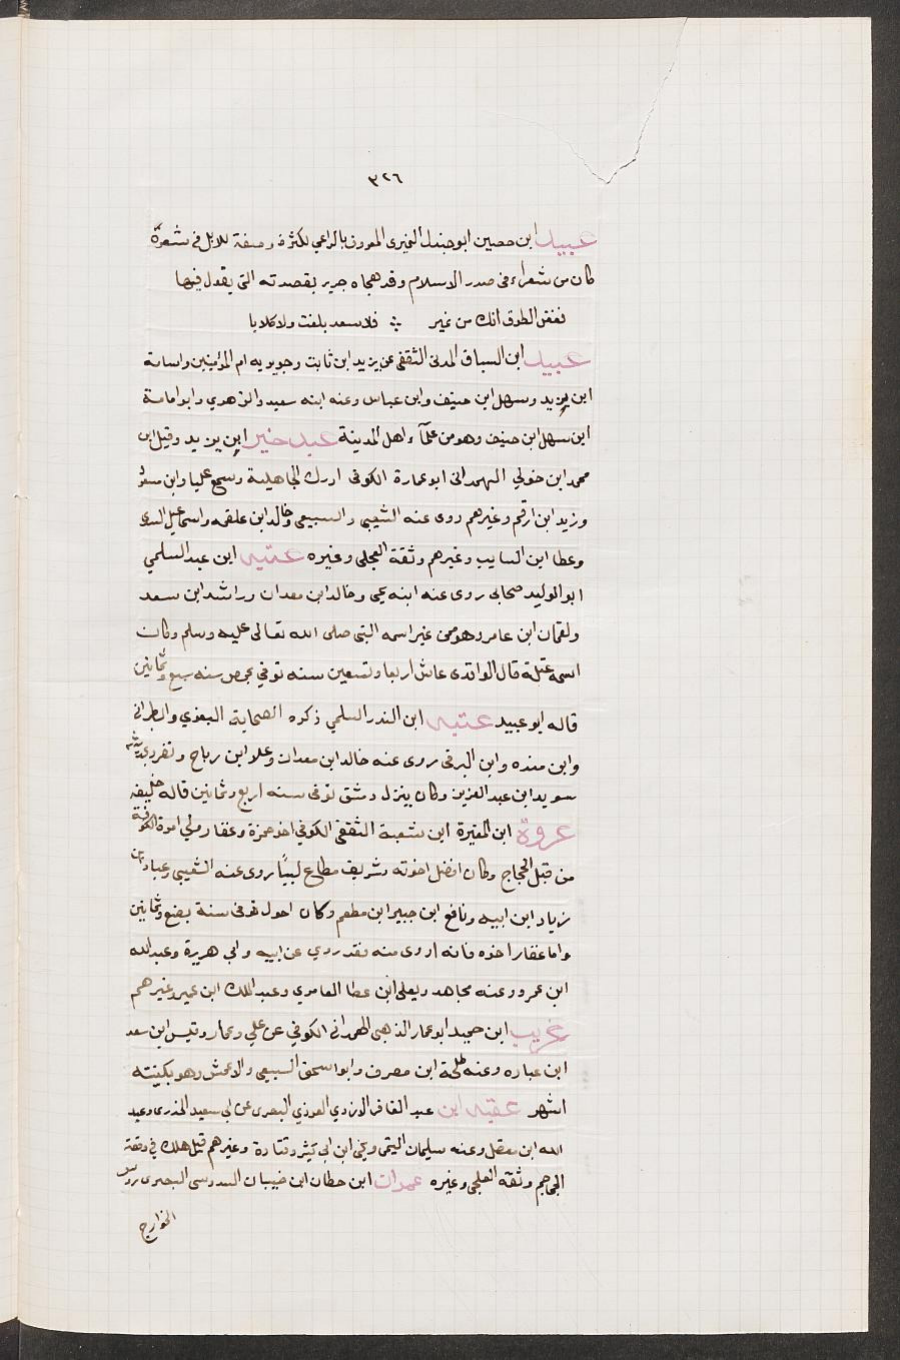 ٣٢٦
عبيد ابن حصين ابو جندل النميرى المعروف بالراعي لكثرة وصفه للابل في شعره
كان من شعراء فى صدر الاسلام وقد هجاه جرير بقصدته التى يقول فيها
فغض الطرف انك من نمير ∴ فلا سعد بلغت ولا كلابا
عبيد ابن السباق المدنى الثقفى عن زيد ابن ثابت وجويريه ام المؤمنين واسامة
ابن يزيد وسهل ابن حنيف وابن عباس وعنه ابنه سعيد والزهري وابو امامة
ابن سهل ابن حنيف وهو من علمآ واهل المدينة عبد خير ابن يزيد وقيل ابن
محمد ابن خولي الهمدانى ابو عمارة الكوفى ادرك الجاهلية وسمع عليا وابن مسعود
وزيد ابن ارقم وغيرهم روى عنه الشعبى والسبيعى وخالد ابن علقمه واسماعيل السدى
وعطا ابن السايب وغيرهم وثقة العجلى وغيره عتبه ابن عبد السلمي
ابو الوليد صحابى روى عنه ابنه يحيى وخالد ابن معدان وراشد ابن سعد
ولقمان ابن عامر وهو ممن غير اسمه النبى صلى الله تعالى عليه وسلم وكان
اسمه عتلة قال الواقدى عاش اربعا وتسعين سنه توفي بحمص سنه سبع وثمانين
قاله ابو عبيد عتبه ابن الندر السلمي ذكره الصحابة البغوي والطبرانى
وابن منده وابن البرقى روى عنه خالد ابن معدان وعلا ابن رباح وتفرد بحديثه
سويد ابن عبد العزيز وكان ينزل دمشق توفى سنه اربع وثمانين قاله خليفه
عروة ابن المغيرة ابن شعبة الثقفى الكوفي اخو حمزة وعقار ولي امرة الكوفة
من قبل الحجاج وكان افضل اخوته وشريف مطاع لبيبًا روى عنه الشعبى وعباد بن
زياد ابن ابيه ونافع ابن جبير ابن مطعم وكان احول توفى سنة بضع وثمانين
واما عقار اخوه فانه اروى منه فقد روي عن ابيه وابي هريرة وعبد الله
ابن عمرو وعنه مجاهد ويعلى ابن عطا العامري وعبد الملك ابن عمير وغيرهم
غريب ابن حميد ابو عمار الذهبى الهمدانى الكوفي عن علي وعمار وقيس ابن سعد
ابن عباده وعنه طلحة ابن مصرف وابو اسحق السبيعى والاعمش وهو بكنيته
اشهر عقبه ابن عبد الغافر الازدي العوذي البصرى عن ابى سعيد الخدرى وعبد
الله ابن مغفل وعنه سليمان التيمى ويحيى ابن ابى كثير وقتادة وغيرهم قتل هلك في وقعة
الجماجم وثقه العجلى وغيره عمران ابن حطان ابن ضبيان السدوسى البصرى روس
الخوارج